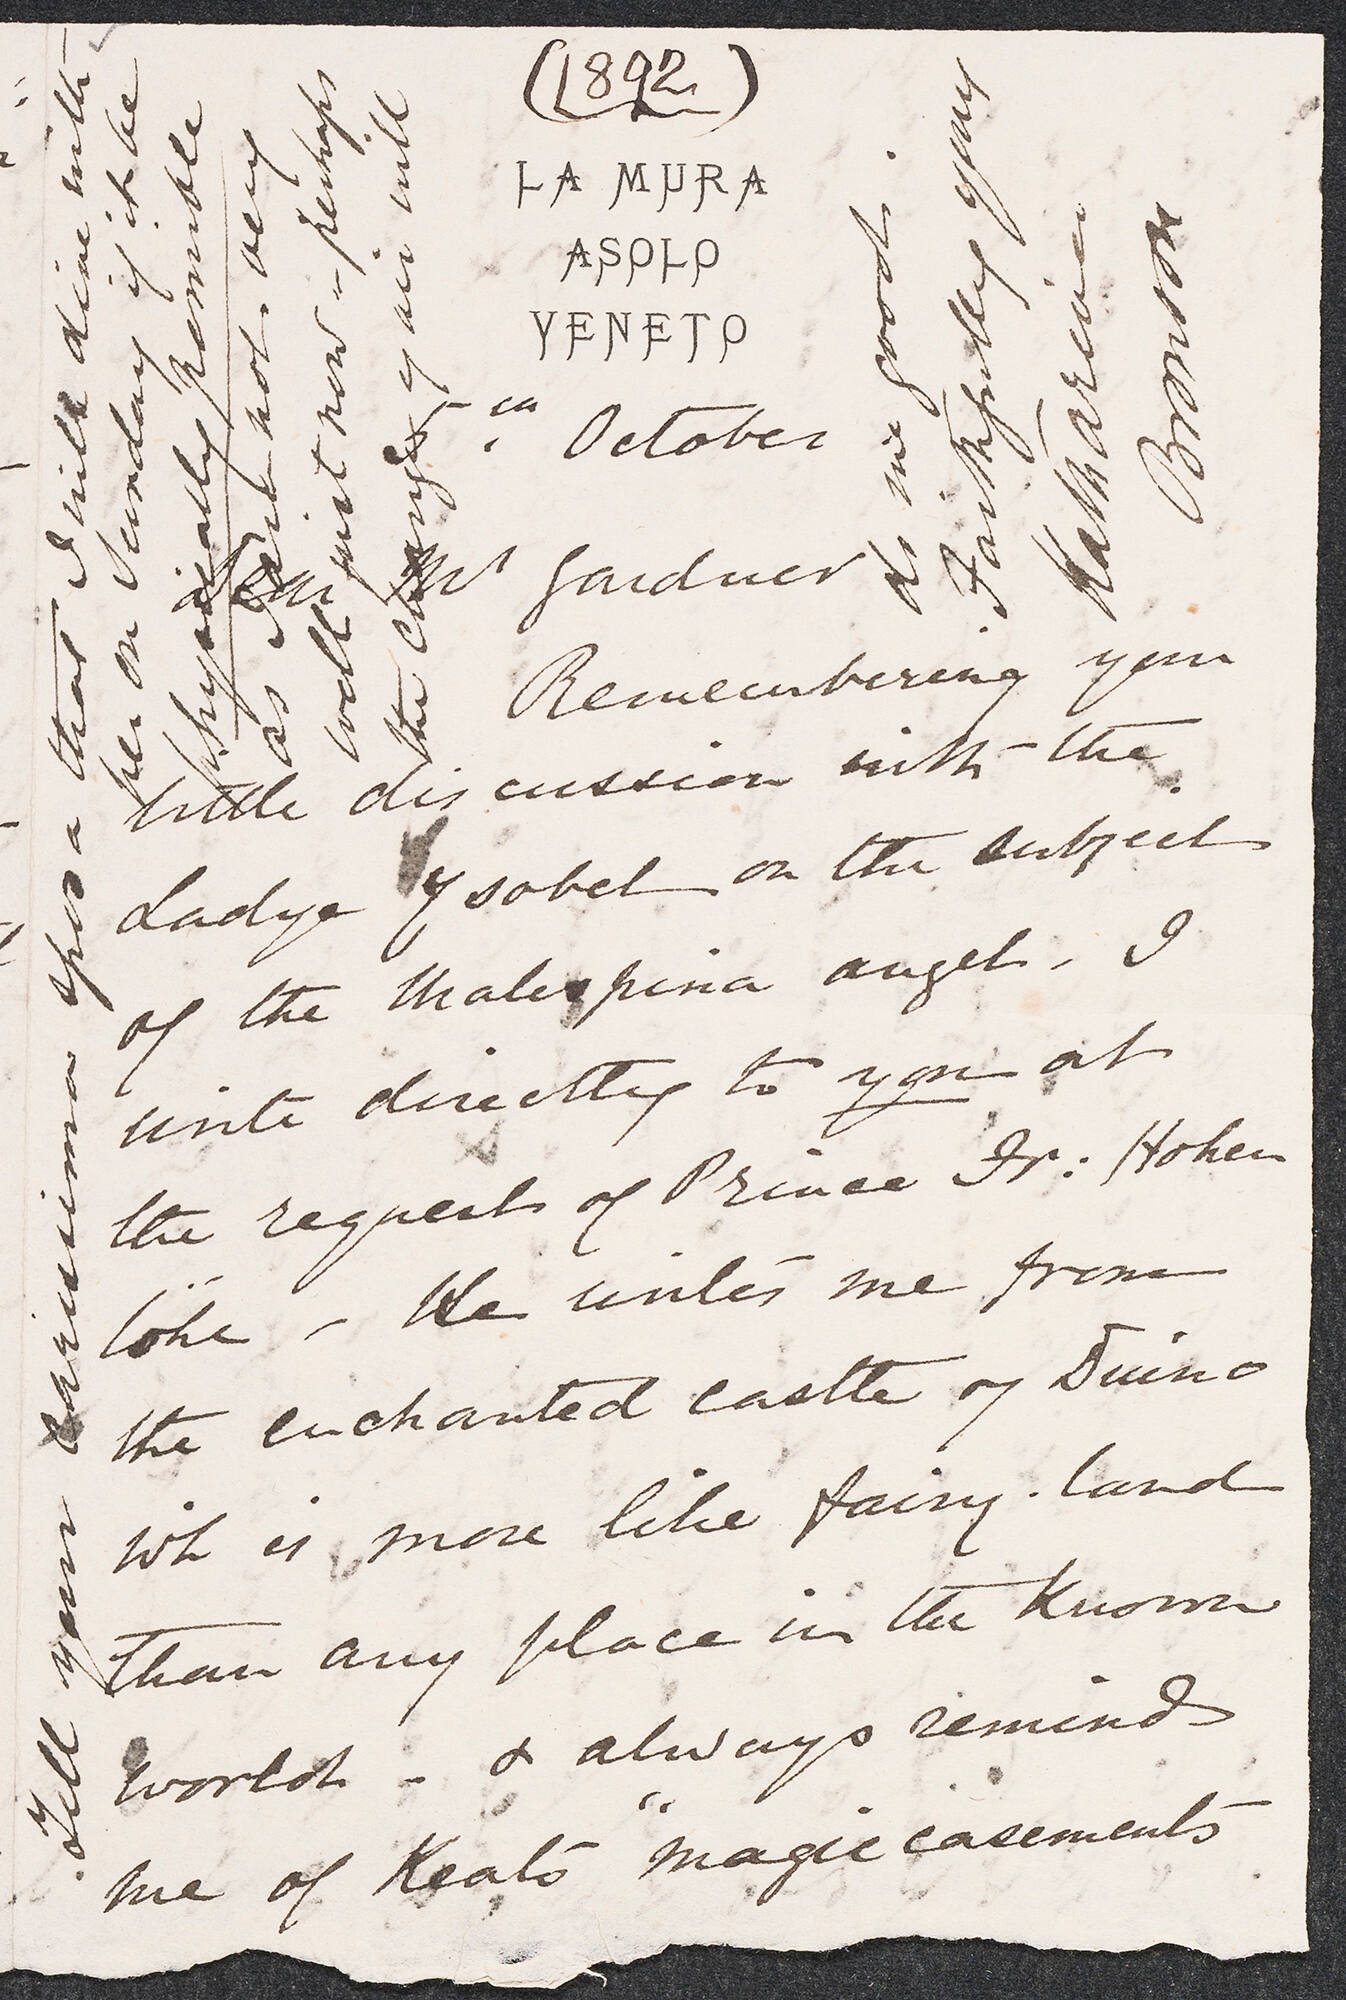 (1892)
LA MURA
ASOLO
VENETO
5th October
Dear Mr Gardner
Remembering your
little discussion with the
Ladye Ysobel on the subject
of the Malespina angel, I
write directly to you at
the request of Prince Fr: Hohen
lohe - He writes me from
the enchanted castle of Duino
wh is more like fairy-land
than any place in the known
world - & always reminds
me of Keats "magic casements
Tell your carissima sposa that I will dine with
her on Sunday if it be
physically possible
as I am not very
well just now - perhaps
the change of air will
do me good.
Faithfully yours
Katharine
Bronson